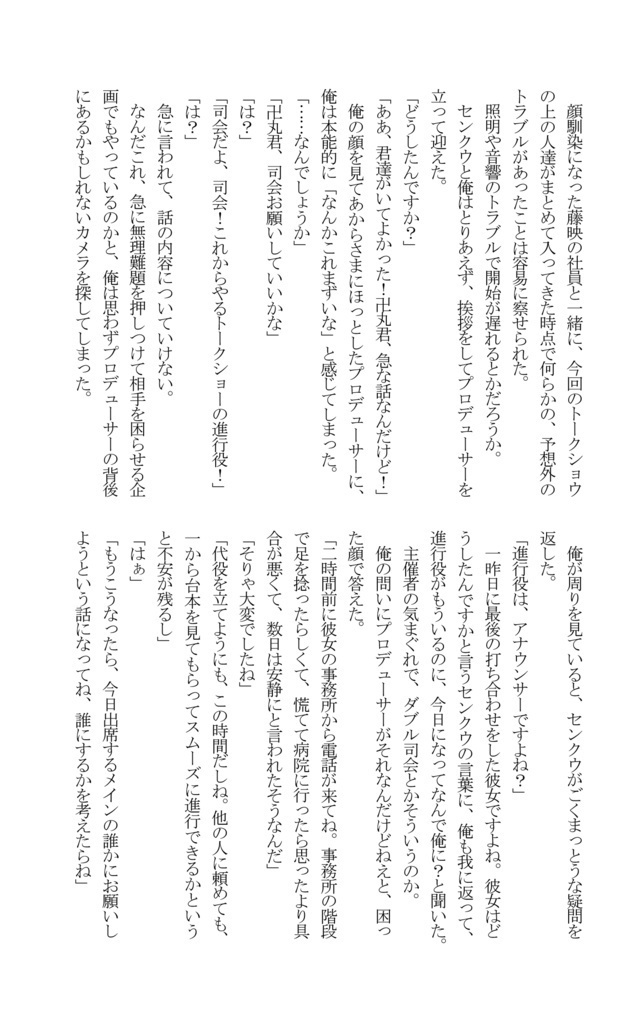 顔馴染になった藤映の社員と一緒に、今回のトークショウ
の上の人達がまとめて入ってきた時点で何らかの、予想外の
トラブルがあったことは容易に察せられた。
照明や音響のトラブルで開始が遅れるとかだろうか。
センクウと俺はとりあえず、挨拶をしてプロデューサーを
立って迎えた。
「どうしたんですか？」
「ああ、君達がいてよかった！卍丸君、急な話なんだけど！」
俺の顔を見てあからさまにほっとしたプロデューサーに、
俺は本能的に「なんかこれまずいな」と感じてしまった。
「……なんでしょうか」
「卍丸君、司会お願いしていいかな」
「は？」
「司会だよ、司会！これからやるトークショーの進行役！」
「は？」
急に言われて、話の内容についていけない。
なんだこれ、急に無理難題を押しつけて相手を困らせる企
画でもやっているのかと、俺は思わずプロデューサーの背後
にあるかもしれないカメラを探してしまった。
俺が周りを見ていると、センクウがごくまっとうな疑問を
返した。
「進行役は、アナウンサーですよね？」
一昨日に最後の打ち合わせをした彼女ですよね。彼女はど
うしたんですかと言うセンクウの言葉に、俺も我に返って、
進行役がもういるのに、今日になってなんで俺に？と聞いた。
主催者の気まぐれで、ダブル司会とかそういうのか。
俺の問いにプロデューサーがそれなんだけどねえと、困っ
た顔で答えた。
「二時間前に彼女の事務所から電話が来てね。事務所の階段
で足を捻ったらしくて、慌てて病院に行ったら思ったより具
合が悪くて、数日は安静にと言われたそうなんだ」
「そりゃ大変でしたね」
「代役を立てようにも、この時間だしね。他の人に頼めても、
一から台本を見てもらってスムーズに進行できるかという
と不安が残るし」
「はぁ」
「もうこうなったら、今日出席するメインの誰かにお願いし
ようという話になってね、誰にするかを考えたらね」